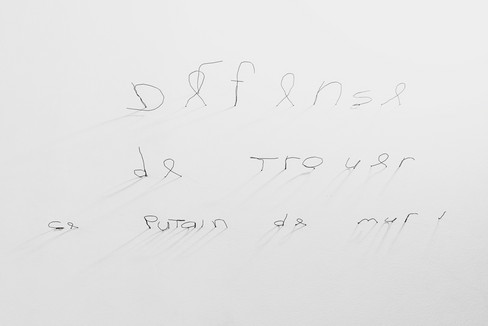 Défense
de Trouer
ce PUTAIN de mur !